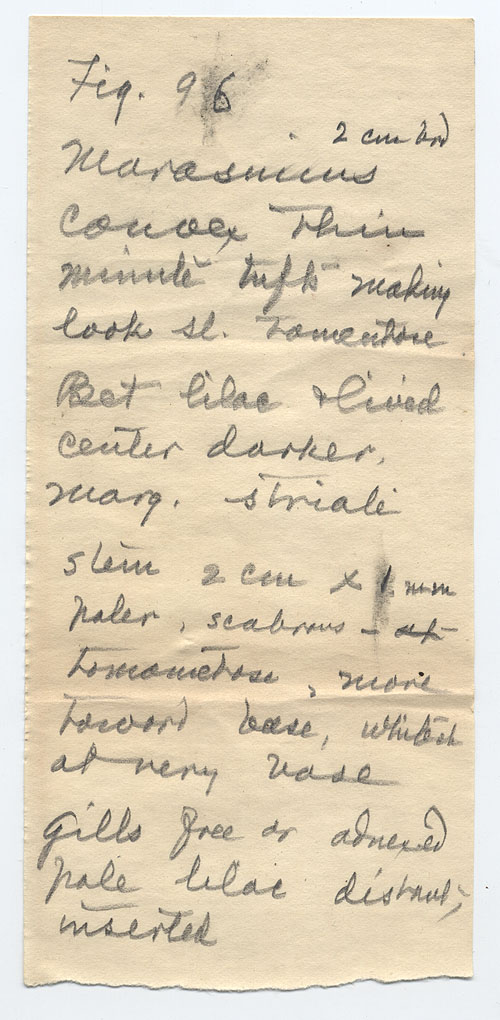 Fig. 96
2 cm brd
Marasmius
Convex Thin
minute tufts making
look sl. tomentose
Bet lilac & livid
center darker,
marg. striate
stem 2 cm x 1 mm
paler, scabrous -
tomometose, more
toward base, whitish
at very base
Gills free or adnexed
pale lilac distant,
inserted